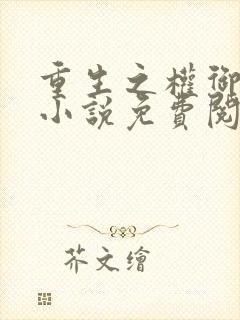 重生之權御
小說免費閱
芥文繪